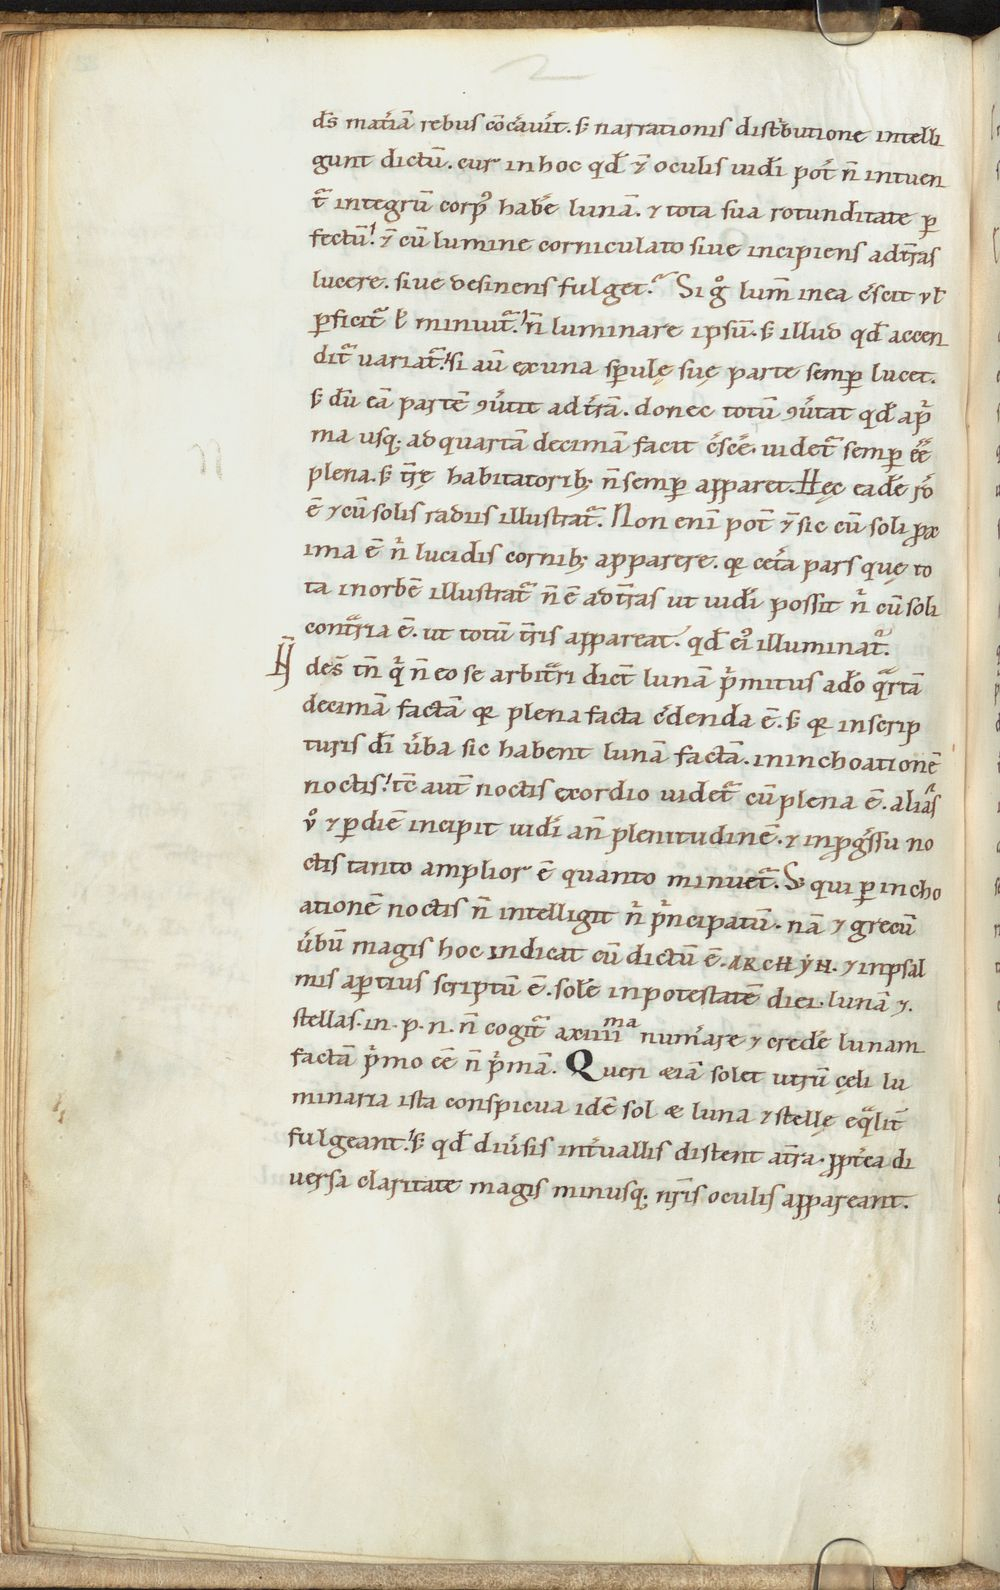 d̄s mat̾iā rebus cōc̾auit. ꝫ narrationis distⁱbutione intelli
gunt dictū. cur in hoc qđ ⁊̄ oculis uidi̾ pot̾ n̄ intuen
t̄ integrū corpꝰ hab̾e lunā. ⁊ tota sua rotunditate ꝑ
fectū! ⁊̄ cū lumine corniculato siue incipiens ad t̄ras
lucere. siue desinens fulget. Si gͦ lum̄ in ea c̾scit vł
ꝑficit̄ ł minuit̄. n̄ luminare ipsū. ꝫ illud qđ accen
dit̄ uariat̄. si aū ex una sperulę suę parte semꝑ lucet.
ꝫ dū eā partē ꝯu̾tit ad t̾rā. donec totū ꝯu̾tat qđ a pⁱ
ma usq; ad quartā decimā facit c̾sc̾e. uidet̄ semꝑ c̾c̾e
plena. ꝫ t̄rę habitatorib; n̄ semꝑ apparet. Hęc ead̾e ro̾
ē ⁊ cū solis radiis illustrat̄. Non enī pot̄ ⁊̄ sic cū soli ꝓx
ima ē nⁱ lucidis cornib; apparere. qr cet̾a pars quę to
ta in orbē illustrat̄ n̄ ē ad t̄ras ut uidi̾ possit nⁱ cū soli
contᵃria ē. ut totū t̄ris appareat. qđ eiꝰ illuminat̄.
Hīdes̄ tn̄ qⁱ n̄ eo se arbitᵃri dic̄t lunā pⁱmitus ad̾o qᵃrtā
decimā factā qr plena facta c̾denda ē. ꝫ qr in scrip
turis dī u̾ba sic habent lunā factā. in inchoationē
noctis! tc̄ aut̄ noctis exordio uidet̄ cū plena ē. alias
vͦ ⁊ ꝑ diē incipit uidi̾ an̄ plenitudinē. ⁊ in ꝓg̾ssu no
ctis tanto amplior ē quanto minuet̄. Ꝫ qui ꝑ incho
ationē noctis n̄ intelligit nⁱ pⁱncipatū. nā ⁊ grecū
u̾bū magis hoc indicat cū dictū ē. ARCHYN. ⁊ in psal
mis aꝑtius scriptū ē. sol̾e in potestatē diei. lunā ⁊.
stellas. in. p. n. n̄ cogit̄ a xiiiiᵐᵃ num̾are ⁊ cred̾e lunam
factā pⁱmo eē n̄ pⁱmā. Queri etiā solet utrū cęli lu
minaria ista conspicua idē sol et luna ⁊ stellę eqᵃlit̄
fulgeant! ꝫ qđ diu̾sis int̾uallis distent a t̄ra. ꝓpt̾ea di
uersa claritate magis minusq; nr̄is oculis appareant.